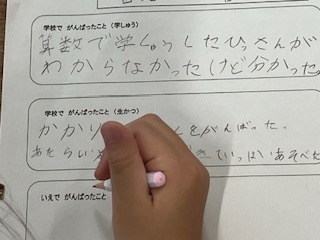 学校で がんばったこと (学しゅう)
算数で学しゅうしたひっさんが
わからなかったけど分かった。
学校で がんばったこと (生かつ)
かかり をがんばった。
あたらしい きていっぱいあそべた
いえで がんばったこと